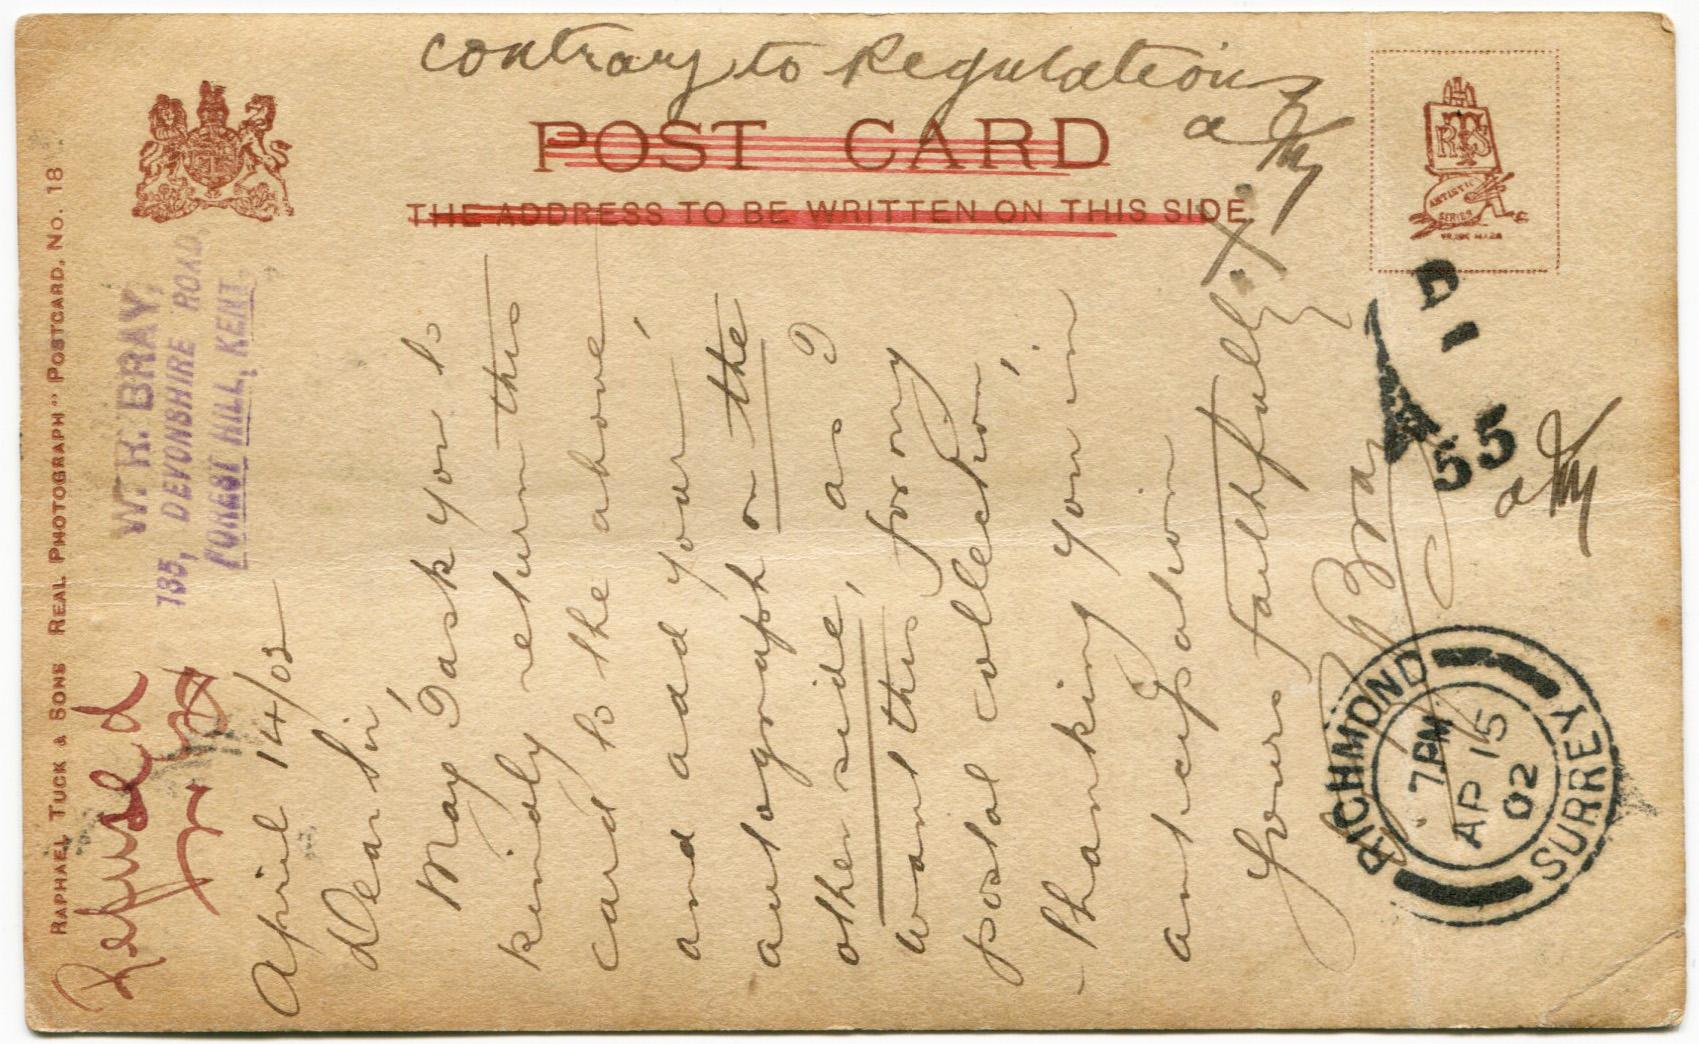 contrary to Regulations
POST CARD
THE ADDRESS TO BE WRITTEN ON THIS SIDE
RTS
ARTISTIC
SERIES
RAPHAEL TUCK & SONS "REAL PHOTOGRAPH" POSTCARD, NO. 18
W. R. BRAY,
135, DEVONSHIRE ROAD,
FOREST HILL, KENT.
Refused
April 14/02
Dear Sir,
May I ask you to
kindly return this
card to the above
and add your
autograph on the
other side, as I
want this for my
postal collection,
Thanking you in
anticipation
Yours faithfully
Bray
D
1
55
RICHMOND
7 PM
AP 15
02
SURREY